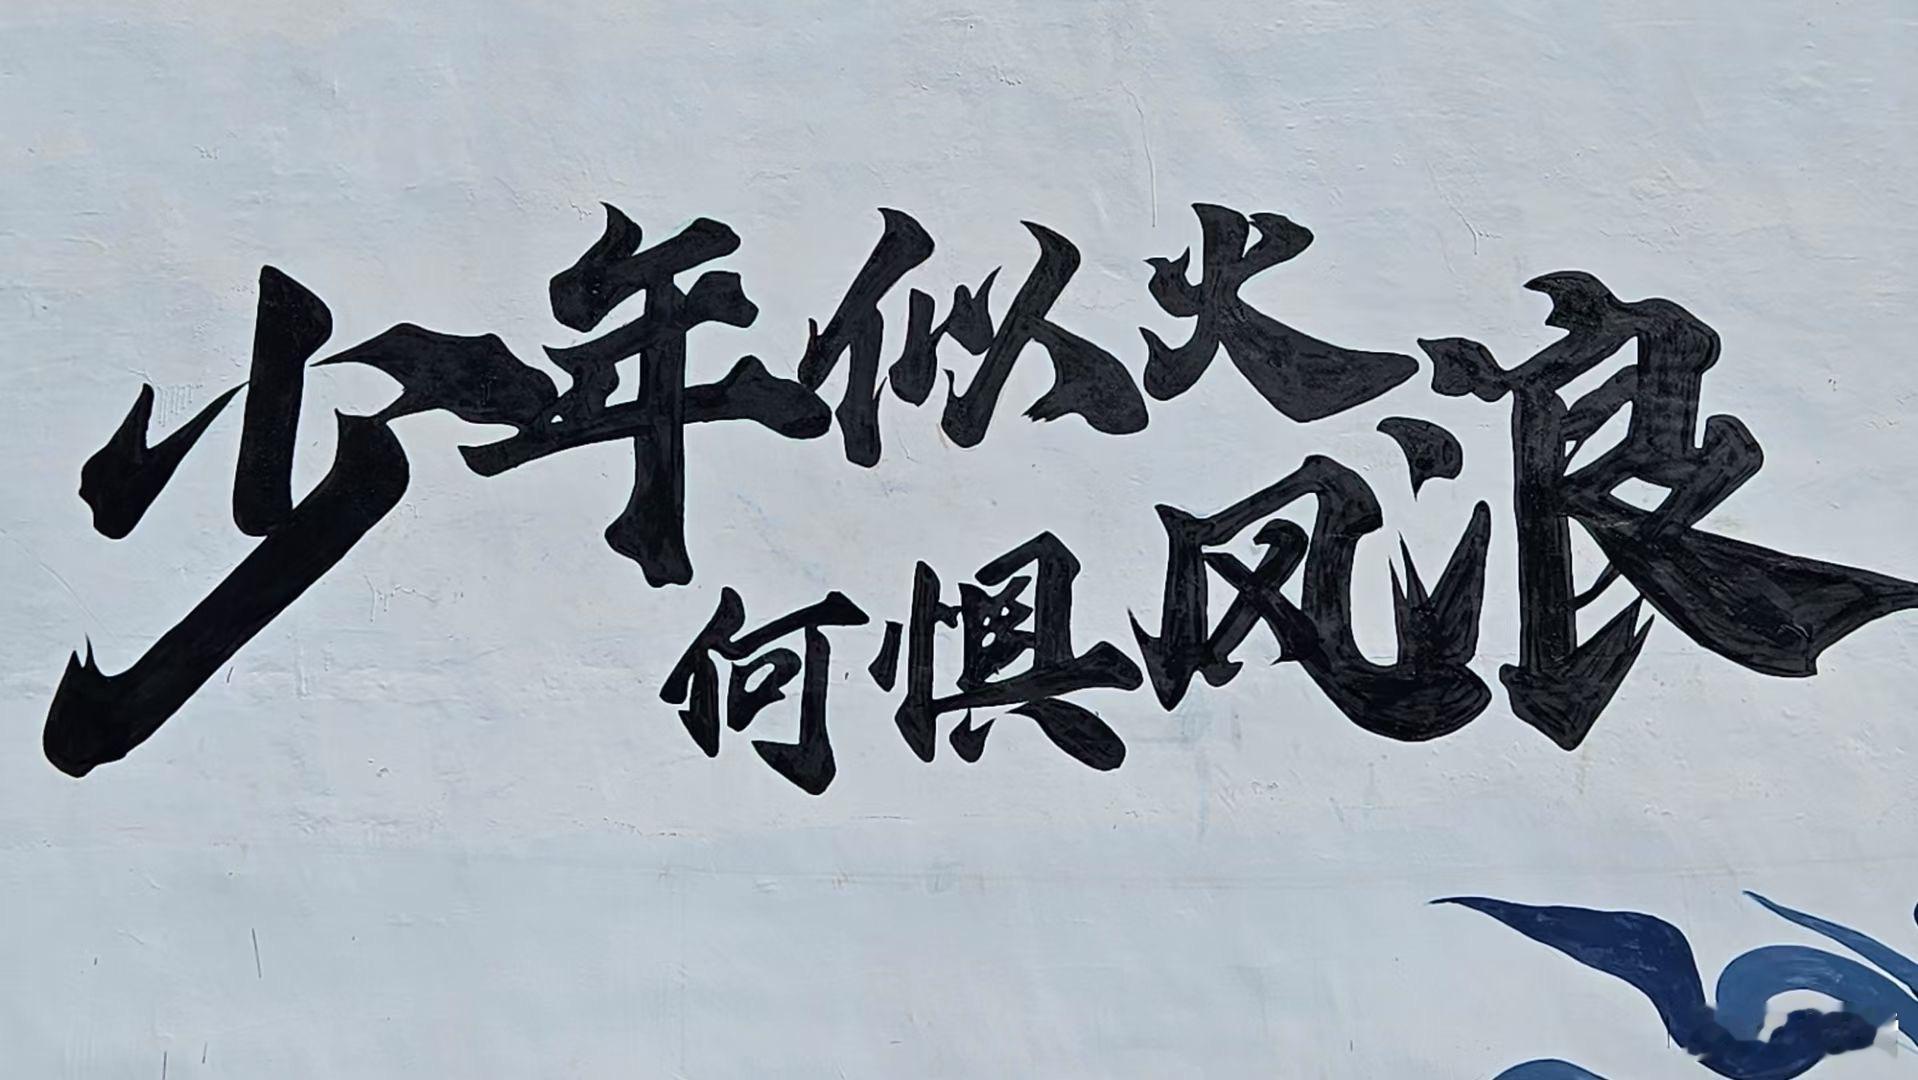 少年似火
何惧风浪